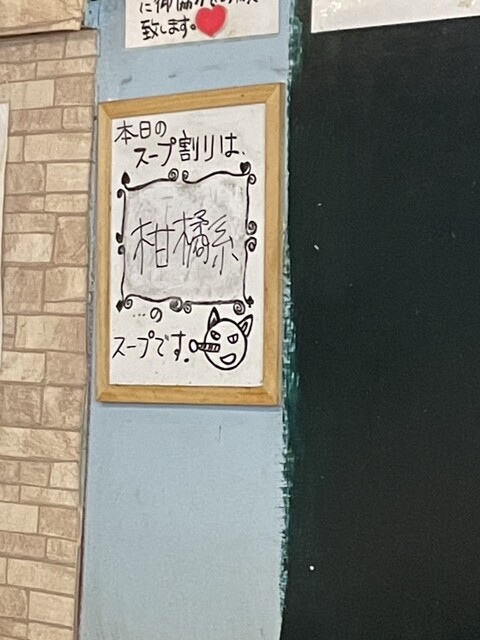 致します。
本日の
スープ割りは、
柑橘系
…の
スープです。